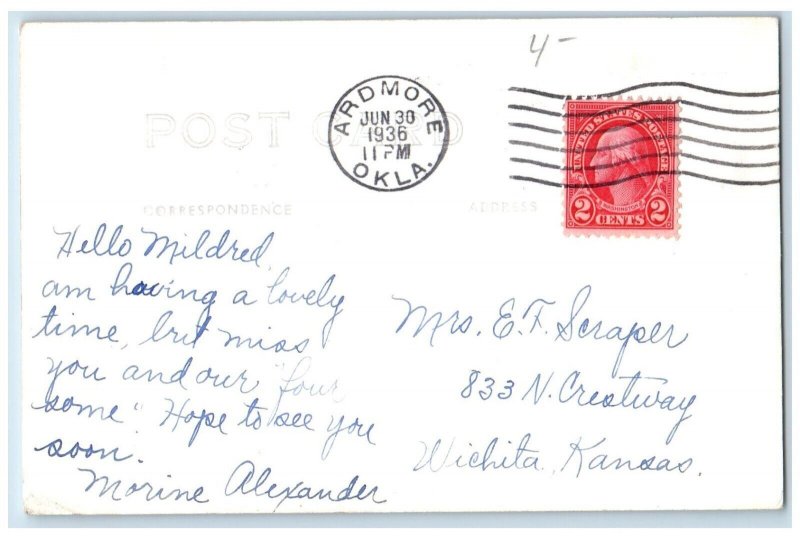 4-
POST CARD
ARDMORE
JUN 30
1936
11 PM
OKLA.
UNITED STATES POSTAGE
WASHINGTON
2 CENTS 2
CORRESPONDENCE
ADDRESS
Hello Mildred,
am having a lovely
time, but miss
you and our "four
some". Hope to see you
soon.
Morine Alexander
Mrs. E. F. Scraper
833 N. Crestway
Wichita, Kansas.